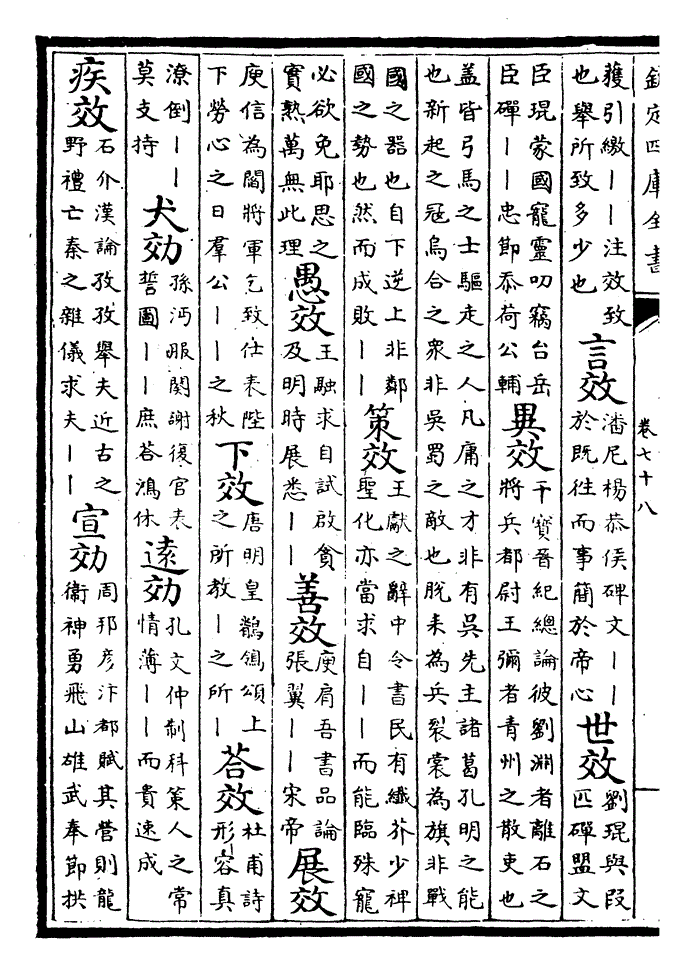 欽定四庫全書
卷七十八
獲引繳丨丨注效致
也舉所致多少也
言效
潘尼楊恭侯碑文丨丨
於既往而事簡於帝心
世效
劉琨與段
匹磾盟文
臣琨蒙國寵靈叨竊台岳
臣磾丨丨忠節忝荷公輔
異效
干寶晉紀總論彼劉淵者離石之
將兵都尉王彌者青州之散吏也
蓋皆弓馬之士驅走之人凡庸之才非有吳先主諸葛孔明之能
也新起之冦烏合之衆非吳蜀之敵也脫耒為兵裂裳為旗非戰
國之器也自下逆上非鄰
國之勢也然而成敗丨丨
策效
王獻之辭中令書民有纖芥少裨
聖化亦當求自丨丨而能臨殊寵
必欲免耶思之
實熟萬無此理
愚效
王融求自試啟貪
及明時展悉丨丨
善效
庾肩吾書品論
張翼丨丨宋帝
展效
庾信為閻將軍乞致仕表陛
下勞心之日羣公丨丨之秋
下效
唐明皇鶺鴒頌上
之所教丨之所丨
荅效
杜甫詩
形容真
潦倒丨丨
莫支持
犬効
孫沔服闋謝復官表
誓圖丨丨庶荅鴻休
遠効
孔文仲制科策人之常
情薄丨丨而貴速成
疾效
石介漢論孜孜舉夫近古之
野禮亡秦之雜儀求夫丨丨
宣効
周邦彥汴都賦其營則龍
衞神勇飛山雄武奉節拱